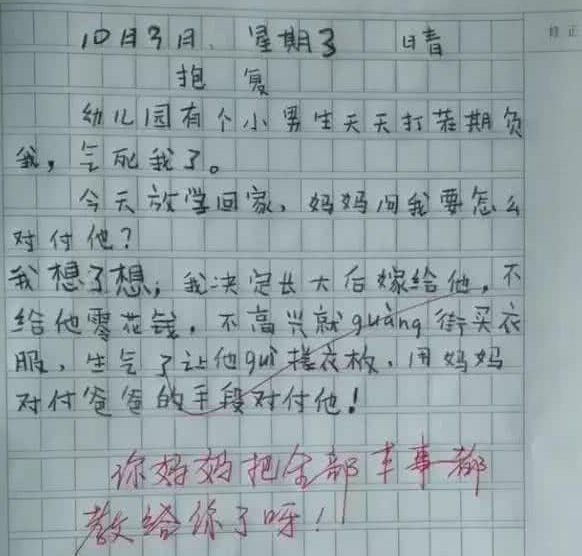 10月3日、星期3 晴
抱复
幼儿园有个小男生天天打茬期负
我，气死我了。
今天放学回家，妈妈问我要怎么
对付他？
我想了想，我决定长大后嫁给他，不
给他零花钱，不高兴就guàng街买衣
服，生气了让他guì搓衣板，用妈妈
对付爸爸的手段对付他！
你妈妈把全部本事都
教给你了呀！！
修正